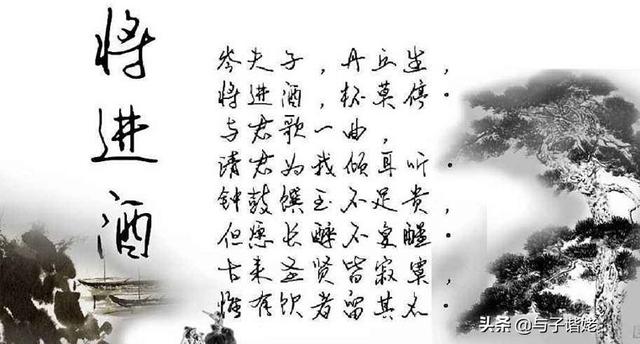 将进酒
岑夫子，丹丘生，
将进酒，杯莫停。
与君歌一曲，
请君为我倾耳听。
钟鼓馔玉不足贵，
但愿长醉不复醒。
古来圣贤皆寂寞，
惟有饮者留其名。
头条 @与子谐姥